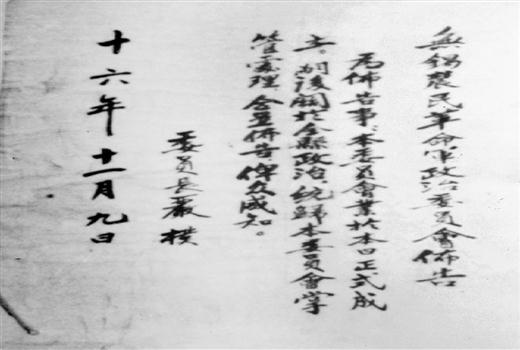 無錫農民革命軍政治委員會佈告
爲佈告事、本委員會業於本日正式成
立。嗣後關於全縣政治、統歸本委員會掌
管處理、合亟佈告俾众咸知。
委員長嚴樸
十六年十一月九日